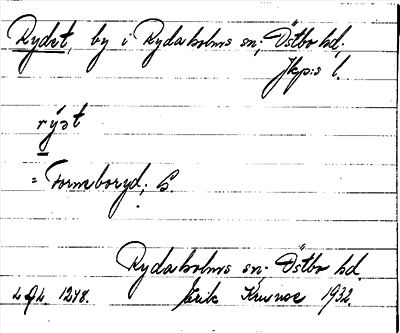 Rydet, by i Rydaholms sn; Östbo hd;
Jkp:s l.
rýət
= Formboryd; S.
Rydaholms sn; Östbo hd.
1248. Erik 1932.